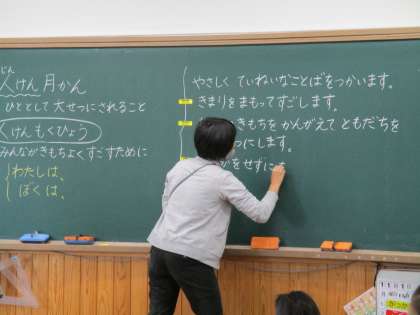 じん
人けん月かん
ひととして大せつにされること
人けんもくひょう
みんながきもちよくすごすために
わたしは、
ぼくは、
やさしく ていねいなことばをつかいます。
きまりをまもってすごします。
きもちをかんがえて ともだちを
つにします。
をせずに
11月